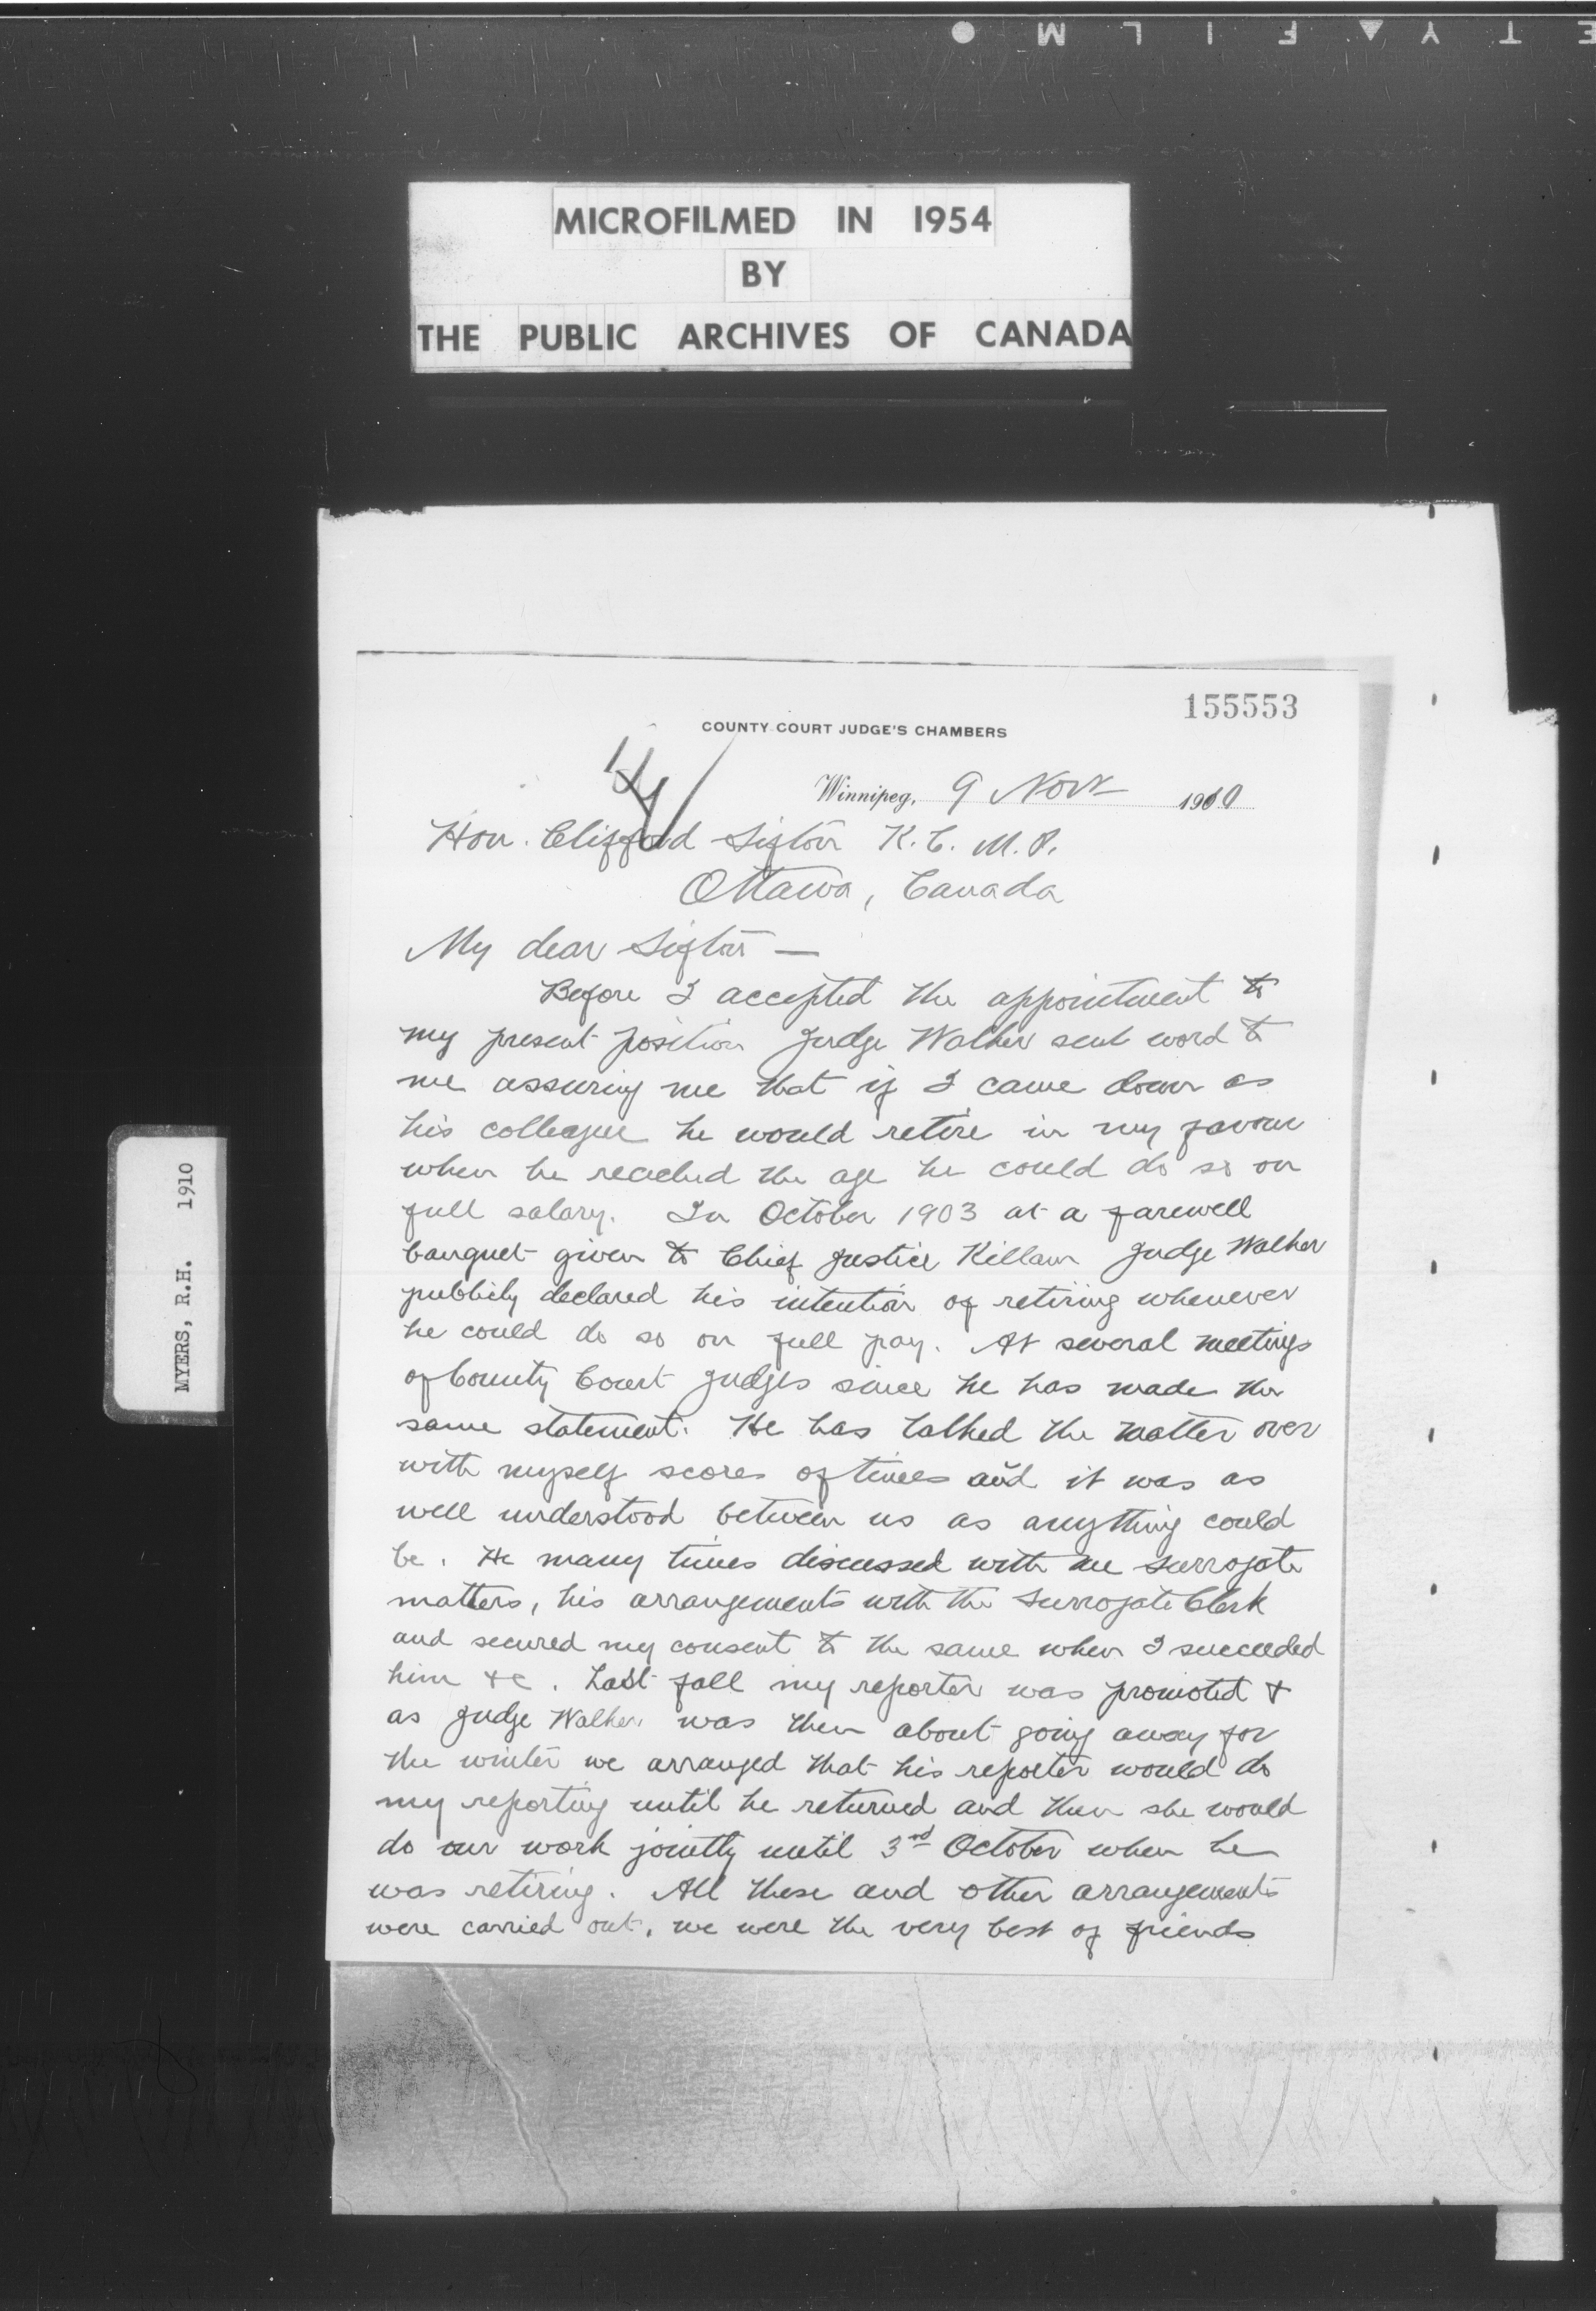 ETY▲FILM●
MICROFILMED IN 1954
BY
THE PUBLIC ARCHIVES OF CANADA
MYERS, R.H. 1910
155553
COUNTY COURT JUDGE'S CHAMBERS
Winnipeg, 9 Novr 1910
Hon. Clifford Sifton K.C. M.P.
Ottawa, Canada
My dear Sifton —
Before I accepted the appointment to
my present position Judge Walker sent word to
me assuring me that if I came down as
his colleague he would retire in my favour
when he reached the age he could do so on
full salary. In October 1903 at a farewell
banquet given to Chief Justice Killam Judge Walker
publicly declared his intention of retiring whenever
he could do so on full pay. At several meetings
of County Court Judges since he has made the
same statement. He has talked the matter over
with myself scores of times and it was as
well understood between us as anything could
be. He many times discussed with me surrogate
matters, his arrangements with the Surrogate Clerk
and secured my consent to the same when I succeeded
him &c. Last fall my reporter was promoted &
as Judge Walker was then about going away for
the winter we arranged that his reporter would do
my reporting until he returned and then she would
do our work jointly until 3rd October when he
was retiring. All these and other arrangements
were carried out, we were the very best of friends